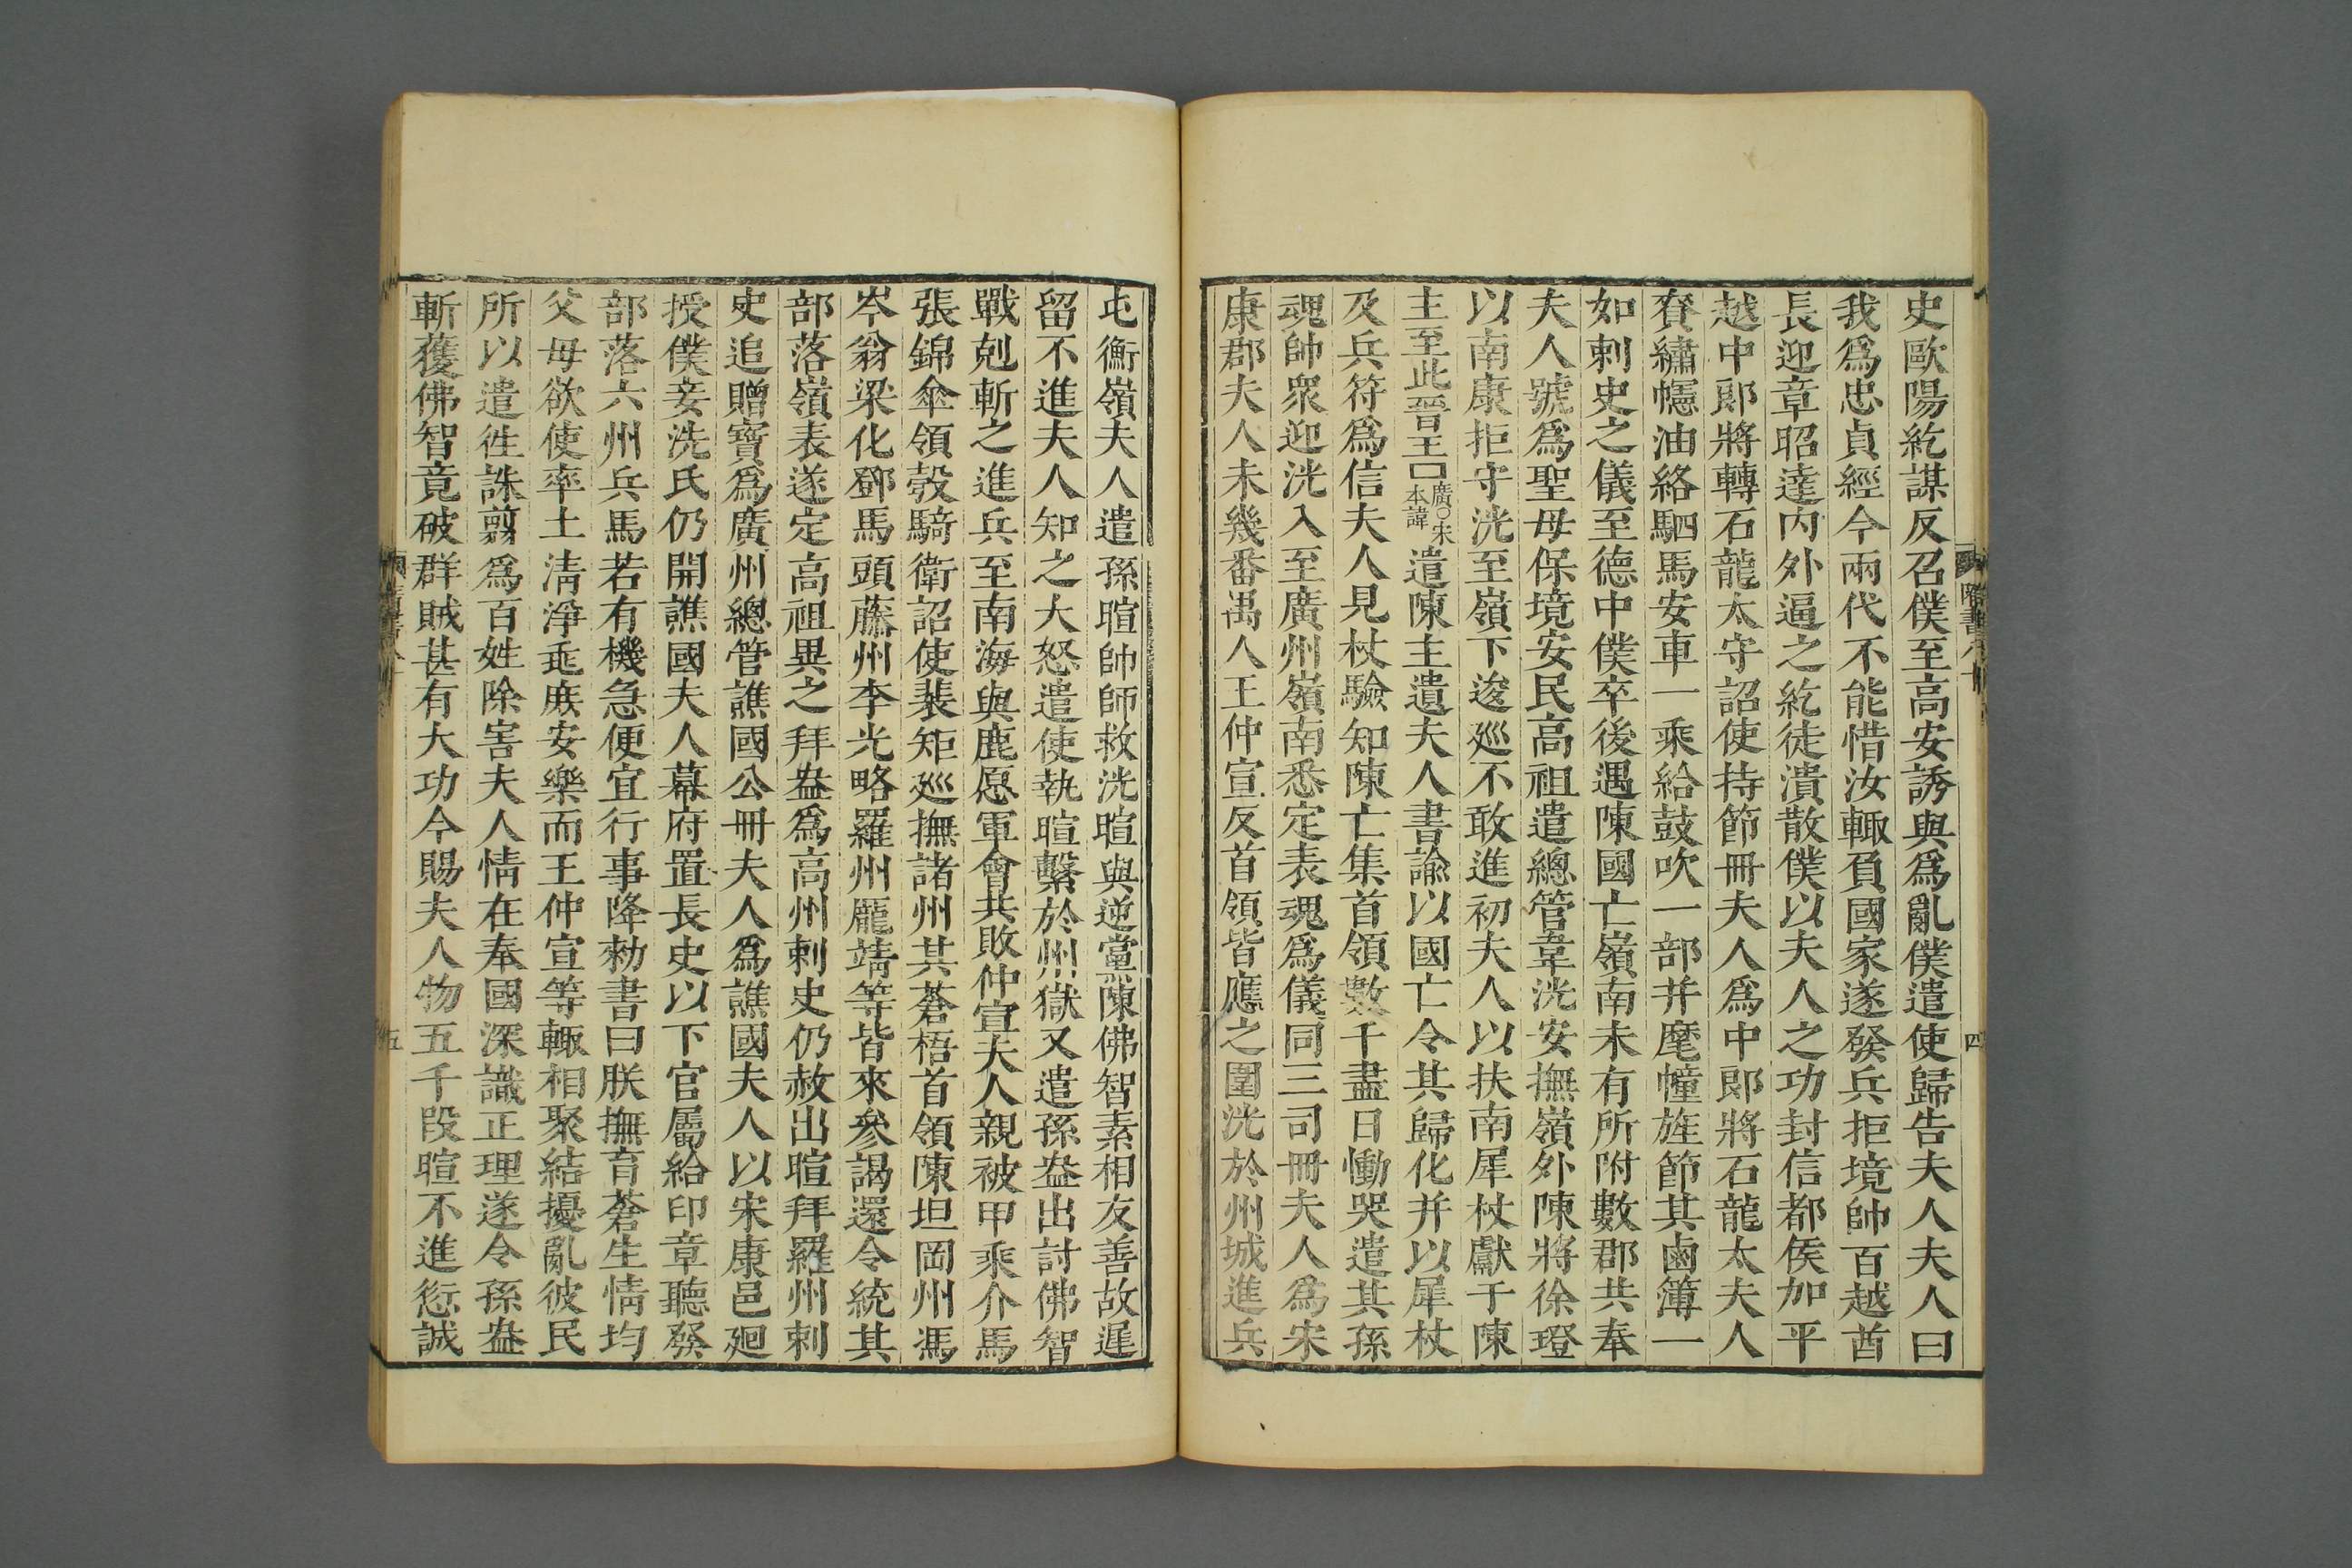 史歐陽紇謀反召僕至高安誘與爲亂僕遣使歸告夫人夫人曰
我爲忠貞經今兩代不能惜汝輙負國家遂發兵拒境帥百越酋
長迎章昭達内外逼之紇徒潰散僕以夫人之功封信都侯加平
越中郎將轉石龍太守詔使持節冊夫人爲中郎將石龍太夫人
賚繡幰油絡駟馬安車一乘給鼓吹一部并麾幢旌節其鹵簿一
如刺史之儀至德中僕卒後遇陳國亡嶺南未有所附數郡共奉
夫人號爲聖母保境安民高祖遣總管韋洸安撫嶺外陳將徐璒
以南康拒守洸至嶺下逡巡不敢進初夫人以扶南犀杖獻于陳
主至此晉王口廣○宋本諱遣陳主遺夫人書諭以國亡令其歸化并以犀杖
及兵符爲信夫人見杖驗知陳亡集首領數千盡日慟哭遣其孫
魂帥衆迎洸入至廣州嶺南悉定表魂爲儀同三司冊夫人爲宋
康郡夫人未幾番禺人王仲宣反首領皆應之圍洸於州城進兵
隋書八十
四
屯衡嶺夫人遣孫暄帥師救洸暄與逆黨陳佛智素相友善故遲
留不進夫人知之大怒遣使執暄繫於州獄又遣孫盎出討佛智
戰剋斬之進兵至南海與鹿愿軍會共敗仲宣夫人親被甲乘介馬
張錦傘領彀騎衛詔使裴矩巡撫諸州其蒼梧首領陳坦岡州馮
岑翁梁化鄧馬頭藤州李光略羅州龐靖等皆來參謁還令統其
部落嶺表遂定高祖異之拜盎爲高州刺史仍赦出暄拜羅州刺
史追贈寶爲廣州總管譙國公冊夫人爲譙國夫人以宋康邑廻
授僕妾洗氏仍開譙國夫人幕府置長史以下官屬給印章聽發
部落六州兵馬若有機急便宜行事降勑書曰朕撫育蒼生情均
父母欲使率土清淨兆庶安樂而王仲宣等輙相聚結擾亂彼民
所以遣徃誅翦爲百姓除害夫人情在奉國深識正理遂令孫盎
斬獲佛智竟破群賊甚有大功今賜夫人物五千段暄不進愆誠
五